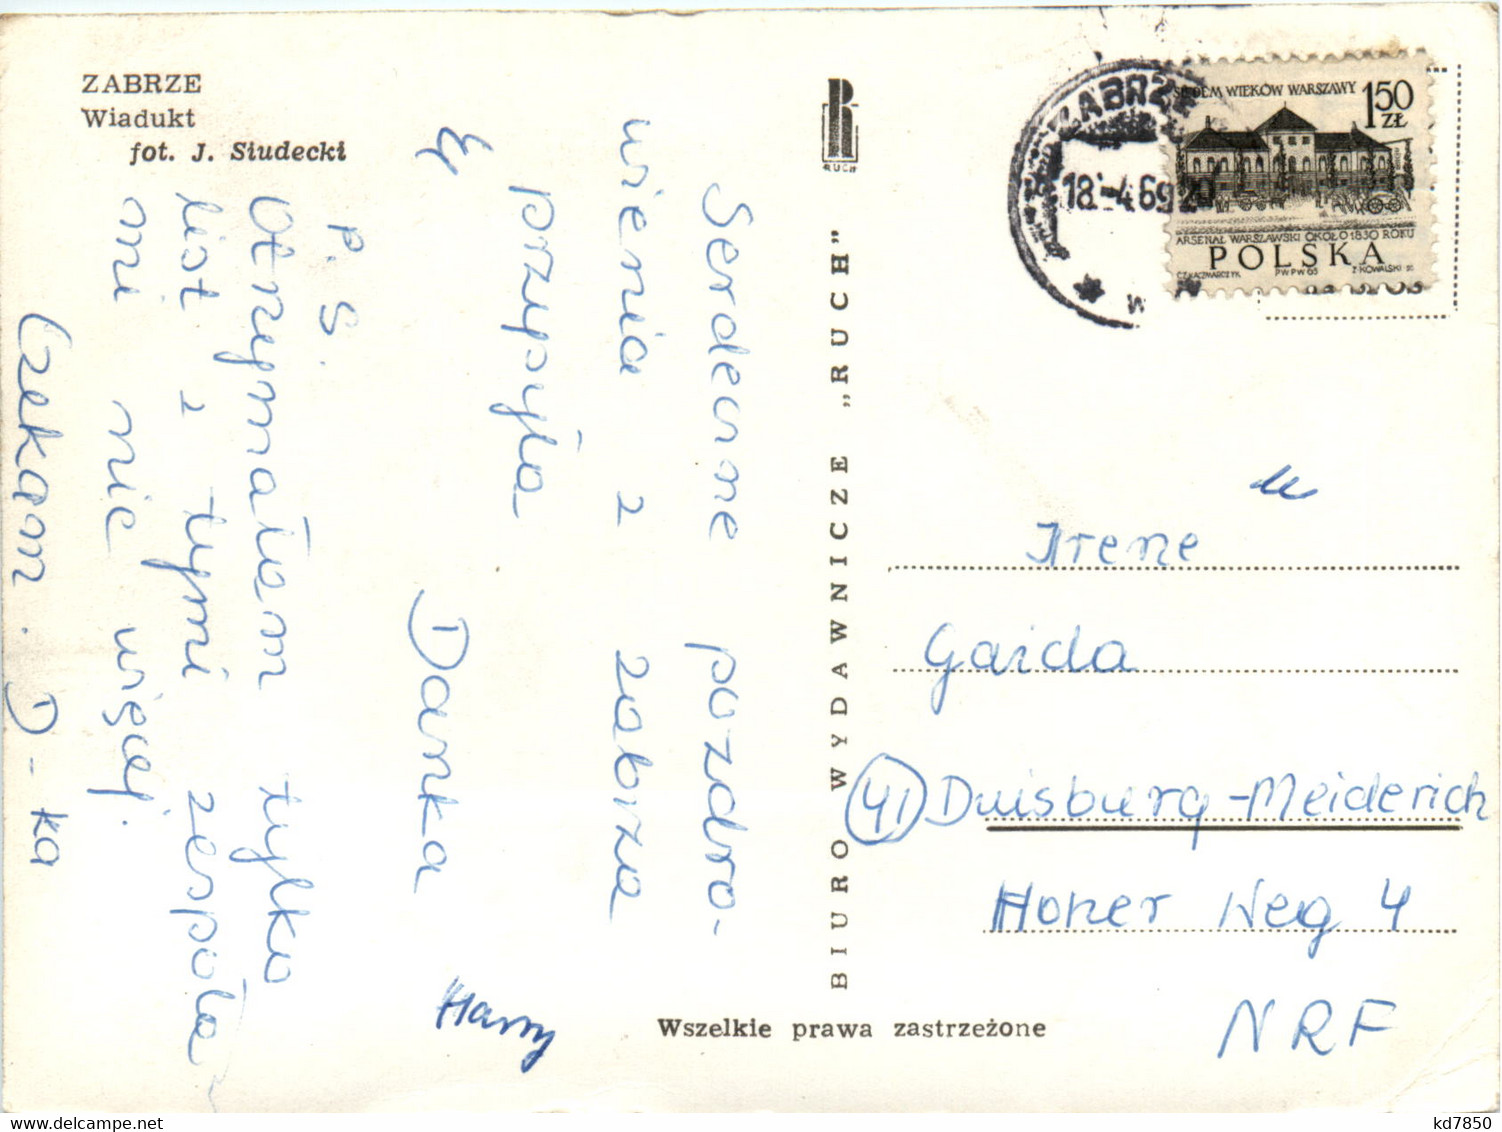 ZABRZE
Wiadukt
fot. J. Siudecki
Serdeczne pozdro-
wienia z zabrza
przysyła
Danka
Harry
P. S.
Otrzymałam tylko
list z tymi zespoła
mi nic więcej.
Czekam. D-ka
RUCH
BIURO WYDAWNICZE „RUCH"
Wszelkie prawa zastrzeżone
ZABRZE
18.-4.69
SIEDEM WIEKÓW WARSZAWY
1.50
ZŁ
ARSENAŁ WARSZAWSKI OKOŁO 1830 ROKU
POLSKA
CZ. KACZMARCZYK PWPW 65 Z. KOWALSKI SC.
Irene
Gaida
41 Duisburg-Meiderich
Honer Weg 4
NRF
www.delcampe.net
kd7850